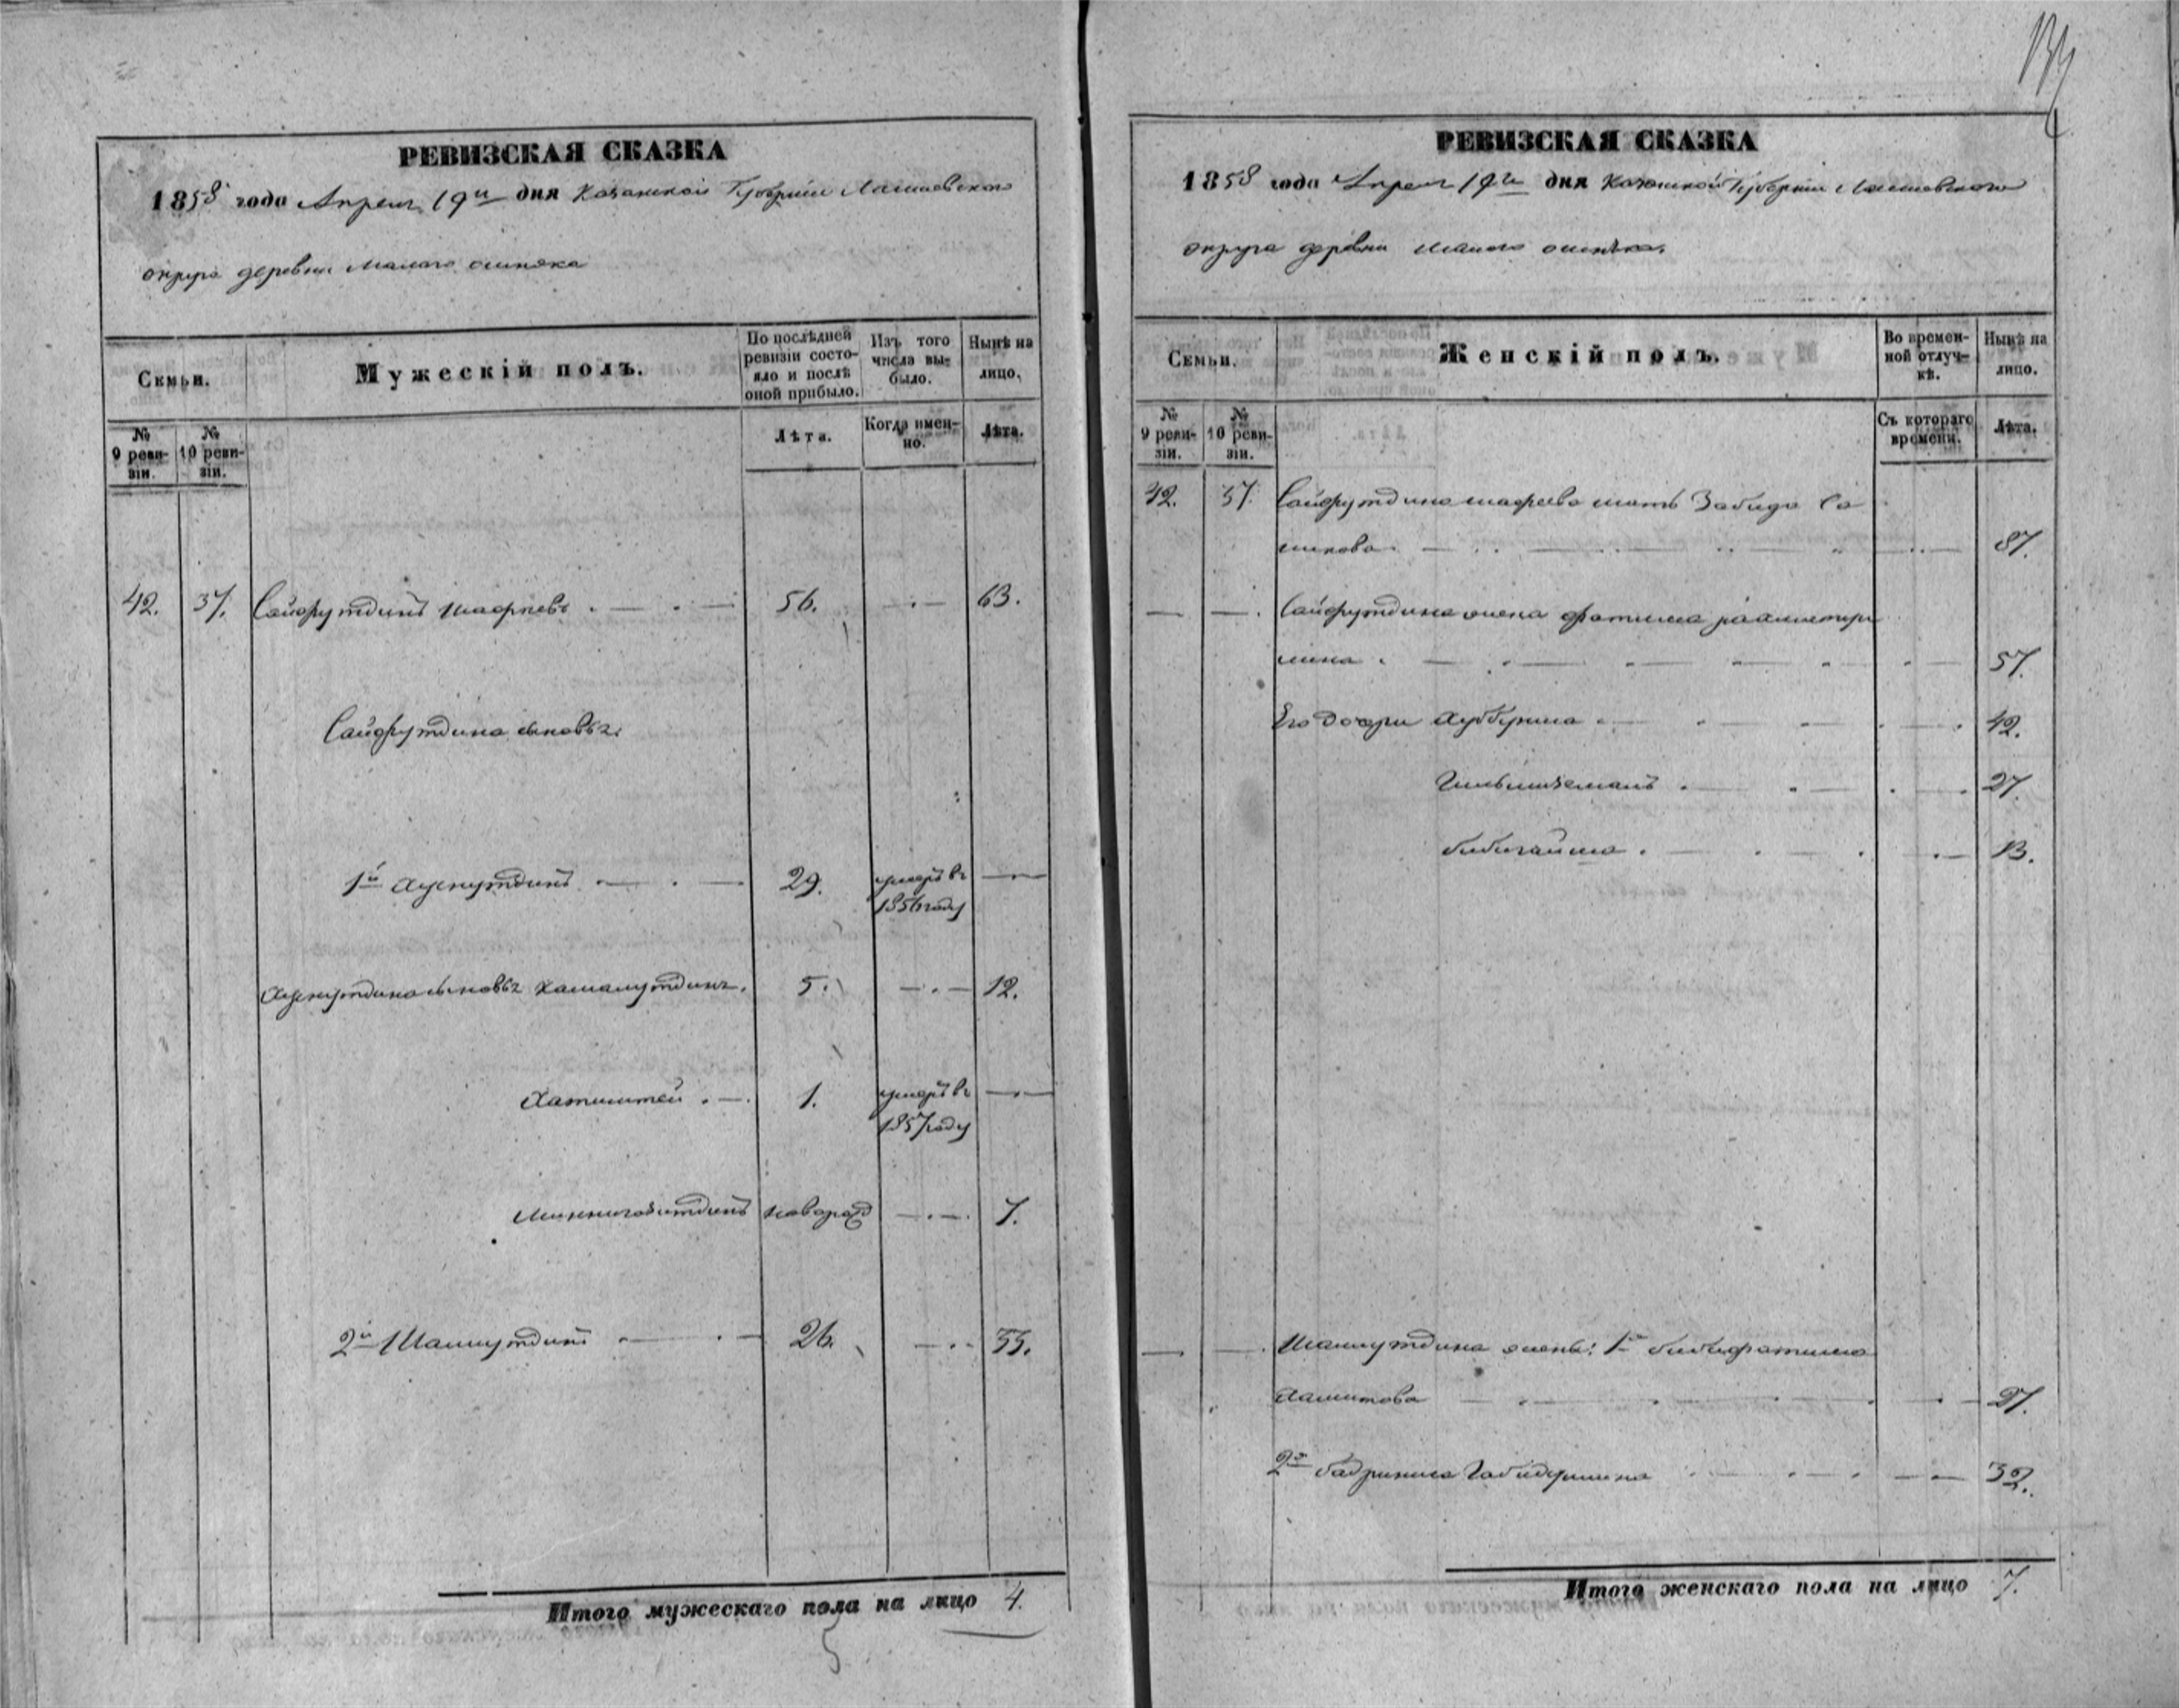 РЕВИЗСКАЯ СКАЗКА
1858 года Апреля 19го дня Казанской Губернии Лаишевскаго
округа деревни Малаго ошняка
Семьи.
Мужескій полъ.
По послѣдней ревизіи состояло и послѣ оной прибыло.
Изъ того числа выбыло.
Нынѣ на лицо.
№ 9 ревизіи.
№ 10 ревизіи.
Лѣта.
Когда именно.
Лѣта.
42. 37. Сайфутдинъ Шафеевъ 56. 63.
Сайфутдина сыновья
1й 29. умеръ въ
1856 году
сыновья Камалутдинъ. 5. 12.
1. умеръ въ
1857 году
новорожд 7.
2й Шамутдинъ 26. 33.
Итого мужескаго пола на лицо 4.
5
РЕВИЗСКАЯ СКАЗКА
1858 года Апреля 19го дня Казанской Губернии Лаишевскаго
округа деревни Малаго ошняка.
Семьи.
Женскій полъ.
Во временной отлучкѣ.
Нынѣ на лицо.
№ 9 ревизіи.
№ 10 ревизіи.
Съ котораго времени.
Лѣта.
42. 37. Сайфутдина Шафеева мать Забида Са
87.
Сайфутдина жена фатима
57.
Его дочери 42.
27.
13.
Шамутдина жены: 1я бибифатима
Хамитова 27.
2я бадриниса 32.
Итого женскаго пола на лицо 7.